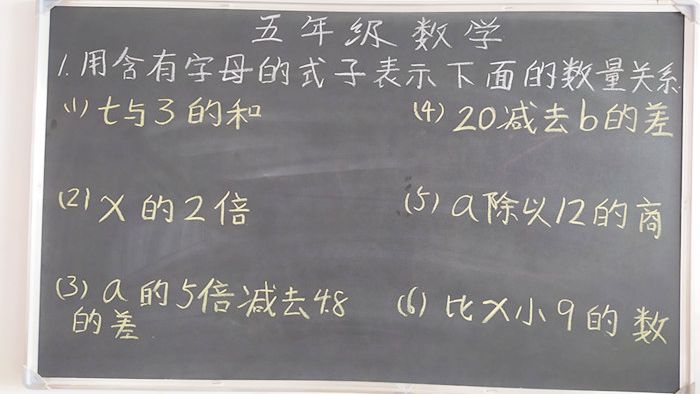 五年级数学
1.用含有字母的式子表示下面的数量关系.
(1) t与3的和
(4) 20减去b的差
(2) x的2倍
(5) a除以12的商
(3) a的5倍减去4.8
的差
(6) 比x小9的数